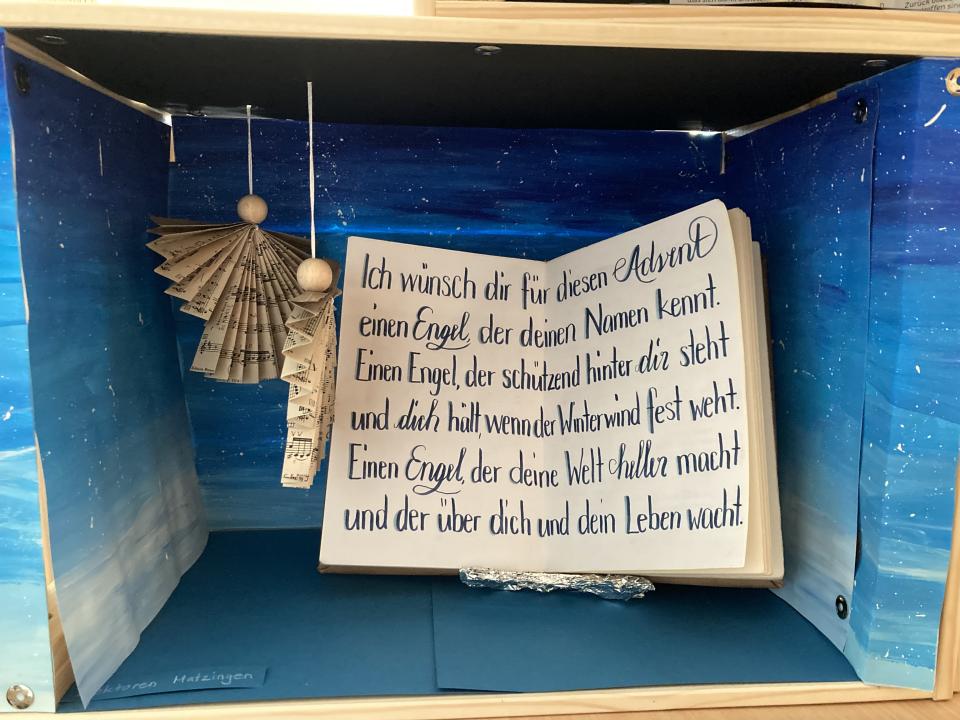 Ich wünsch dir für diesen Advent
einen Engel, der deinen Namen kennt.
Einen Engel, der schützend hinter dir steht
und dich hält, wenn der Winterwind fest weht.
Einen Engel, der deine Welt heller macht
und der über dich und dein Leben wacht.
Matzingen